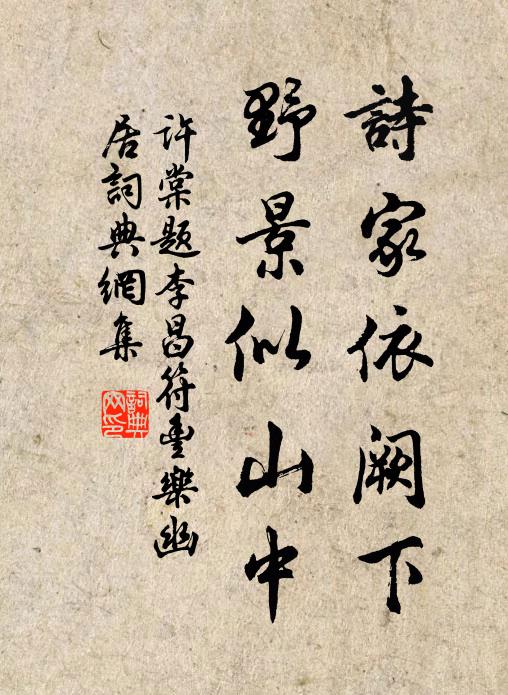 詩家依闕下
野景似山中
許棠題李昌符豐樂幽
居詞典網集
詞典
网印